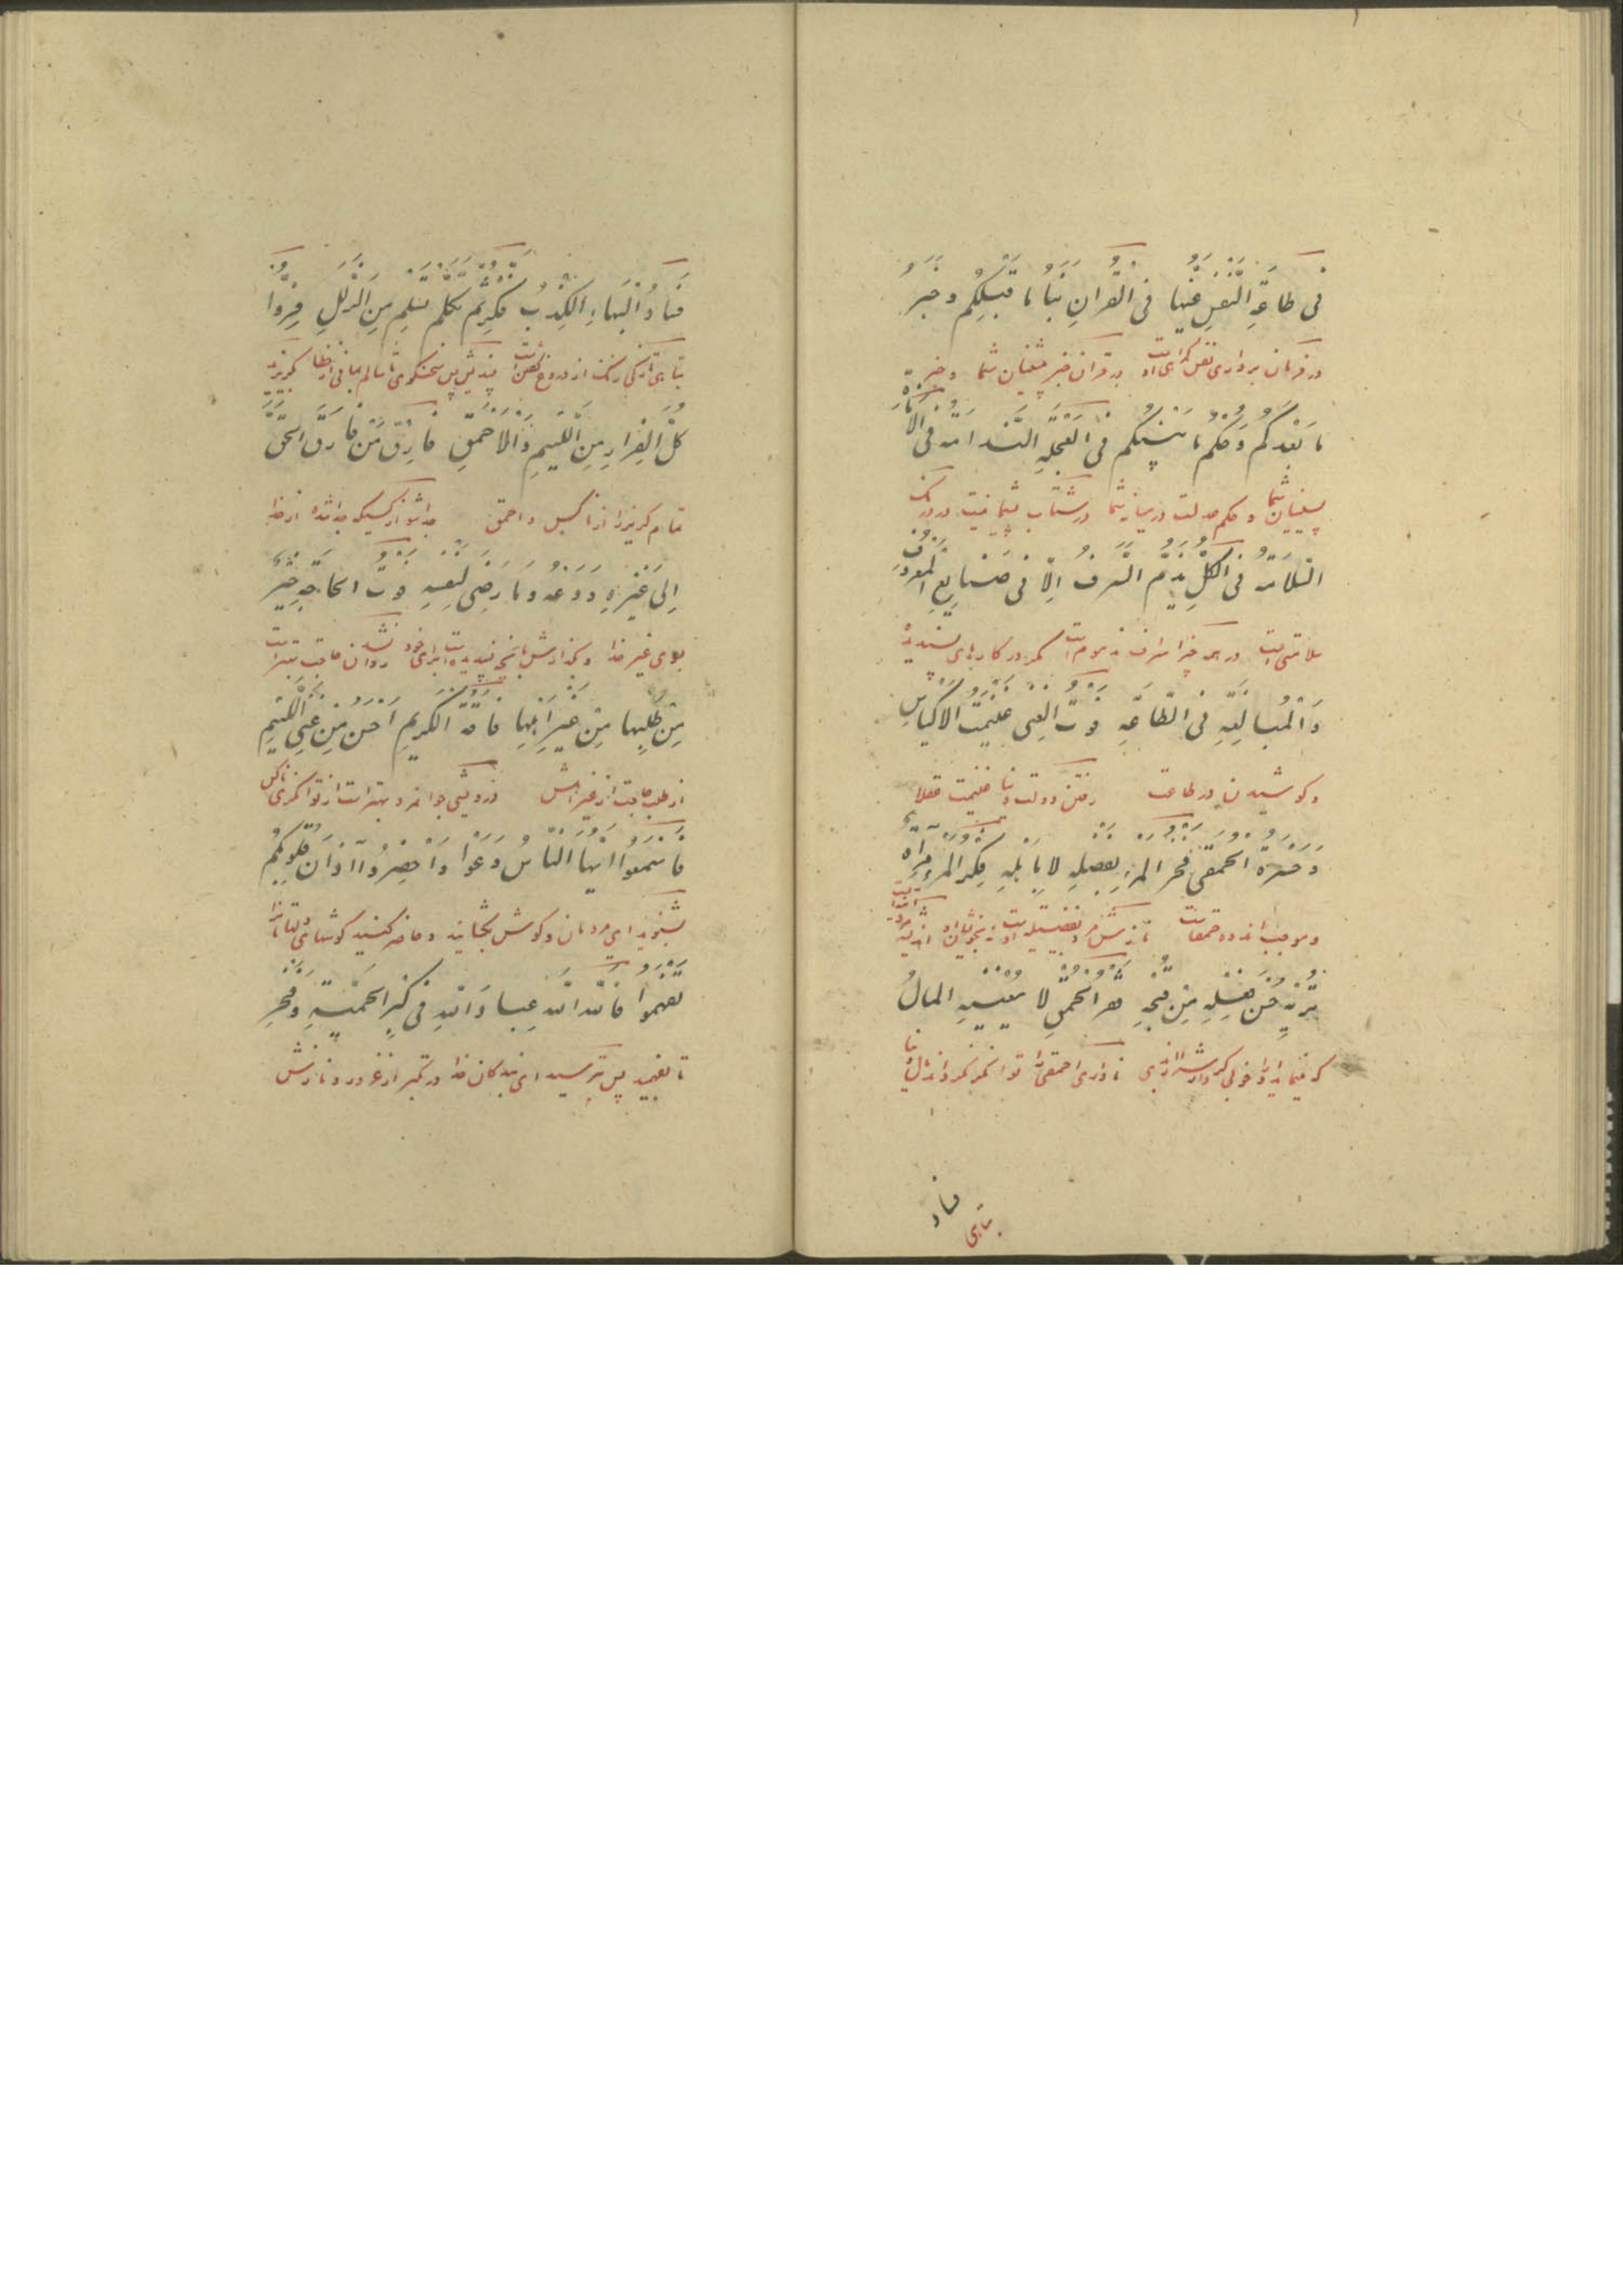 فی طاعَةِ النَّفسِ غَیُّها فی القُرانِ نَبَأُ ما قَبلَکُم و خَبَرُ
در فرمان برداری نفس کمراهی است در قران خبر پیشینیان شما و خبر
ما بَعدَکُم وَ حُکمُ ما بَینَکُم فی العَجَلَةِ النَّدامَةُ فی الاَناةِ
پسینیان شما و حکم عدلست در میان شما در شتاب پشیمانیست در درنک
السَّلامَةُ فی الکُلِّ یُذَمُّ السَّرَفُ اِلّا فی صَنایِعِ المَعروفِ
سلامتی است در همه چیز اسراف مذموم است مکر در کارهای پسندیده
وَ المُبالَغَةِ فی الطّاعَةِ فَوتُ الغِنی غَنیمَةُ الاَکیاسِ
و کوشیدن در طاعت رفتن دولت دنیا غنیمت عقلا
وَ حَسرَةُ الحَمقی فَخرُ المَرءِ بِفَضلِهِ لا بِاَهلِهِ فِکرُ المَرءِ مِرآةٌ
و موجب اندوه حمقاست نازش مرد بفضیلت اوست نه بخویشان او اندیشه مرد
تُریهِ حُسنَ عَمَلِهِ مِن قُبحِهِ فَقرُ الحُمقِ لا یُغنیهِ المالُ
که مینماید او را خوبی کردارش را از بدی ناداری احمقی را توانکر نکرداند مال دنیا
فساد
تباهی
فَسادُ البَهاءِ الکِذبُ فَکِّر ثُمَّ تَکَلَّم تَسلَم مِنَ الزَّلَلِ فِرّوا
تباهی تازکی رنک از دروغ کفتن است بیندیش پس سخنکوی تا سالم بمانی از خطا بکریزید
کُلَّ الفِرارِ مِنَ اللَّئیمِ وَ الاَحمَقِ فارِق مَن فارَقَ الحَقَّ
تمام کریز را از ناکس و احمق جدا شو از کسیکه جدا شده از خدا
اِلی غَیرِهِ وَ دَعهُ وَ ما رَضِیَ لِنَفسِهِ فَوتُ الحاجَةِ خَیرٌ
بسوی غیر خدا و بکذارش بآنچه پسندیده است برای خود روان نشدن حاجت بهتر است
مِن طَلَبِها مِن غَیرِ اَهلِها فاقَةُ الکَریمِ اَحسَنُ مِن غِنَی اللَّئیمِ
از طلب حاجت از غیر اهلش درویشی جوانمرد بهتر است از توانکری ناکس
فَاسمَعوا اَیُّهَا النّاسُ وَعوا وَ اَحضِروا آذانَ قُلوبِکُم
بشنوید ای مردمان و کوش بکشایید و حاضر کنید کوشهای دلتان را
تَفهَموا فَاللّهَ اللّهَ عِبادَ اللّهِ فی کِبرِ الحَمِیَّةِ وَ فَخرِ
تا بفهمید پس بترسید ای بندکان خدا در تکبر از غرور و نازش